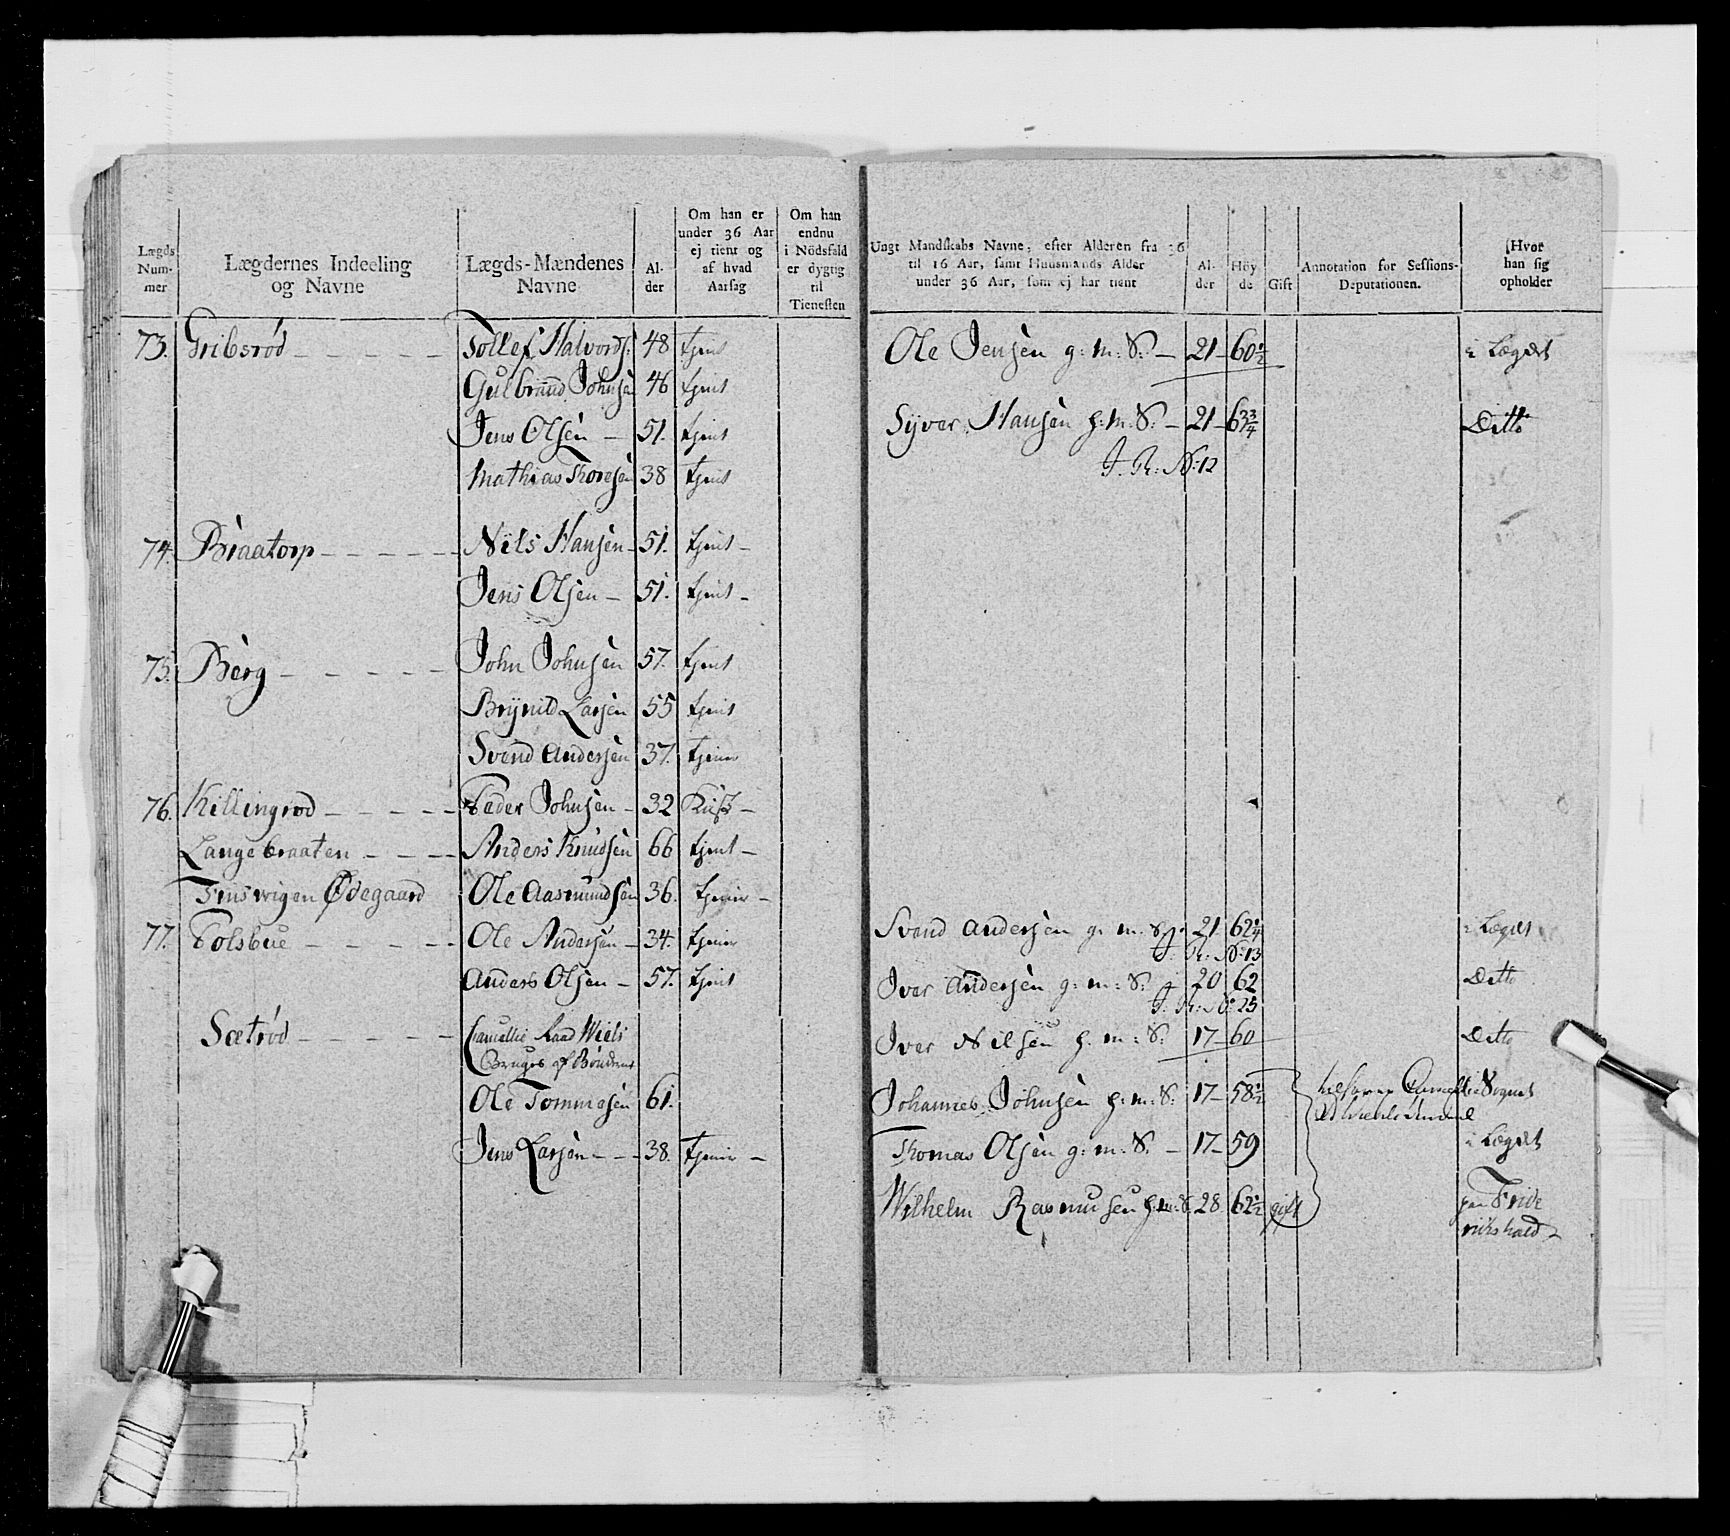 Lægds Num- mer
Lægdernes Indeeling og Navne
Lægds-Mændenes Navne
Al- der
Om han er under 36 Aar ej tient og af hvad Aarsag
Om han endnu i Nödsfald er dygtig til Tienesten
73. Gribsrød - - - - - Tollef Halvords: 48 tjent
Gulbrand Johnsen 46 tjent
Jens Olsen - 51. tjent
Mathias Thoresen 38 tjent
74. Braatorp - - - - - Nils Hansen - 51. tjent -
Jens Olsen - 51. tjent -
75. Berg - - - - - John Johnsen 57. tjent
Brynild Larsen 55 tjent
Svend Andersen 37. tjener
76. Killingrød - - - - - Peder Johnsen - 32
Langebraaten - - - - Anders Knudsen 66 tjent -
Ødegaard Ole Aasmundsen 36. tjener -
77. Folsbue - - - - - Ole Andersen - 34. tjener
Anders Olsen - 57. tjent
Sætrød - - - - - Raad Wiels
Bruges af Bønderne
Ole Tommesen 61.
Jens Larsen - - - 38. tjener -
Ungt Mandskabs Navne, efter Alderen fra 36 til 16 Aar, samt Huusmands Alder under 36 Aar, som ej har tient
Al- der
Höy- de
Gift
Annotation for Sessions- Deputationen.
Hvor han sig opholder
Ole Jensen g: m: S: - 21 - 60½ i Lægdet
Syver Hansen h: m: S: - 21 - 63¾ Ditto
J. R: No: 12
Svend Andersen g: m: S: 21 62¼ i Lægdet
J. R: No: 13
Iver Andersen g: m: S: - 20 62 Ditto
J. R: No: 25
Iver Nilsen h: m: S: 17 - 60 Ditto
Johannes Johnsen h: m: S: 17 - 58½ i Sognet
Thomas Olsen g: m: S: - 17 - 59 i Lægdet
Wilhelm Rasmusen h: m: S: 28 62½ gift paa Fride
rikshald -